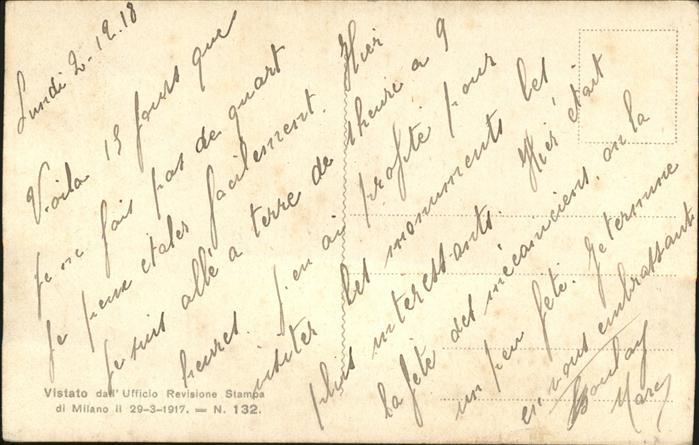 Lundi 2-12.18
Voila 15 jours que
je ne fais pas de quart
je peux etaler facilement. Hier
je suis allé a terre de 1 heure a 9
heures. j'en ai profité pour
visiter les monuments les
plus interessants. Hier était
la fête des mécaniciens, on la
un peu fété. Je termine
en vous embrassant.
Marc
Vistato dall' Ufficio Revisione Stampa
di Milano il 29-3-1917. — N. 132.